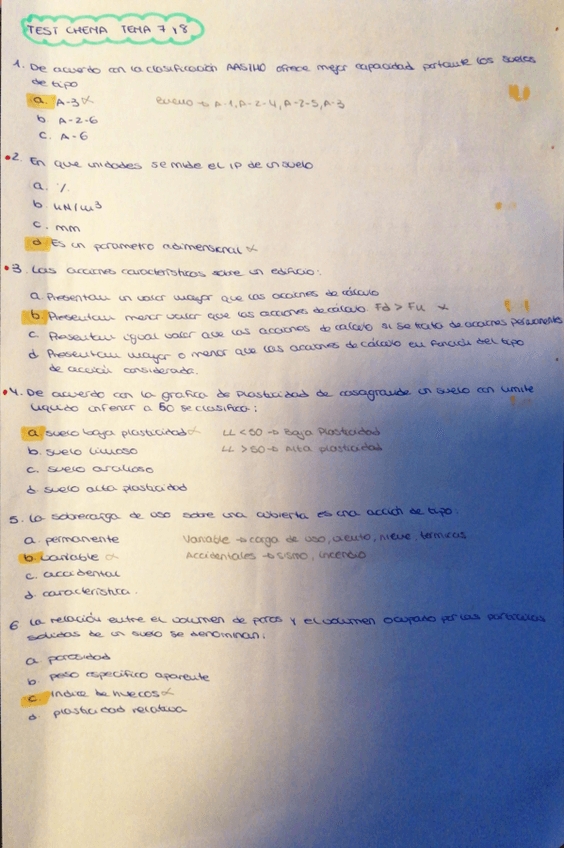 TEST CHEMA TEMA 7 y 8
1. De acuerdo con la clasificación AASTHO ofrece mejor capacidad portante los suelos
de tipo
a. A-3
Bueno → A-1, A-2-4, A-2-5, A-3
b. A-2-6
c. A-6
2. En que unidades se mide el IP de un suelo
a. %
b. kN/m³
c. mm
d. Es un parametro adimensional
3. Las acciones características sobre un edificio:
a. Presentan un valor mayor que las acciones de cálculo
b. Presentan menor valor que las acciones de cálculo. Fd > Fk
c. Presentan igual valor que las acciones de cálculo si se trata de acciones permanentes
d. Presentan mayor o menor que las acciones de cálculo en función del tipo
de acción considerada.
4. De acuerdo con la grafica de Plasticidad de casagrande un suelo con limite
liquido inferior a 50 se clasifica:
a. suelo baja plasticidad
LL < 50 → Baja Plasticidad
b. suelo limoso
LL > 50 → Alta plasticidad
c. suelo arcilloso
d. suelo alta plasticidad
5. La sobrecarga de uso sobre una cubierta es una acción de tipo:
a. permanente
Variable → carga de uso, viento, nieve, termicas
b. variable
Accidentales → sismo, incendio
c. accidental
d. característica.
6 La relación entre el volumen de poros y el volumen ocupado por las partículas
solidas de un suelo se denominan:
a. porosidad
b. peso especifico aparente
c. indice de huecos
d. plasticidad relativa